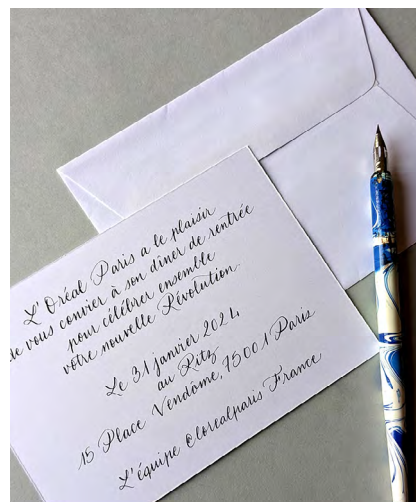 L'Oréal Paris a le plaisir
de vous convier à son dîner de rentrée
pour célébrer ensemble
votre nouvelle Révolution
Le 31 janvier 2024
au Ritz
15 Place Vendôme, 75001 Paris
L'équipe @lorealparis France